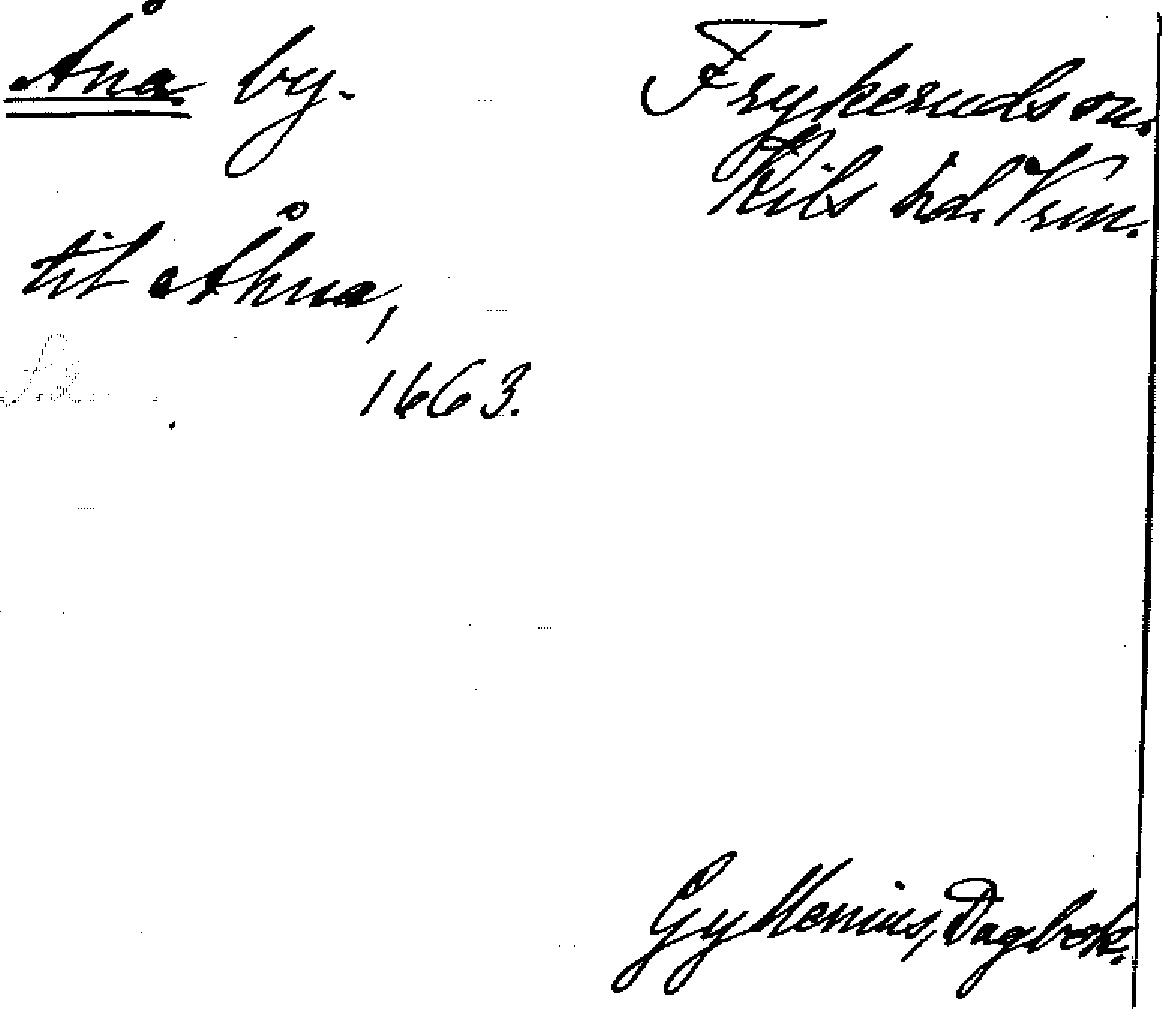 Åna by.
Frykeruds sn.
Kils hd. Vrm.
til Åhna,
1663.
Gyllenius, Dagbok.